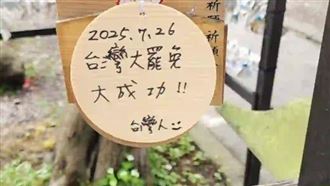 2025.7.26
台灣大罷免
大成功!!
台灣人
祈願
祈願